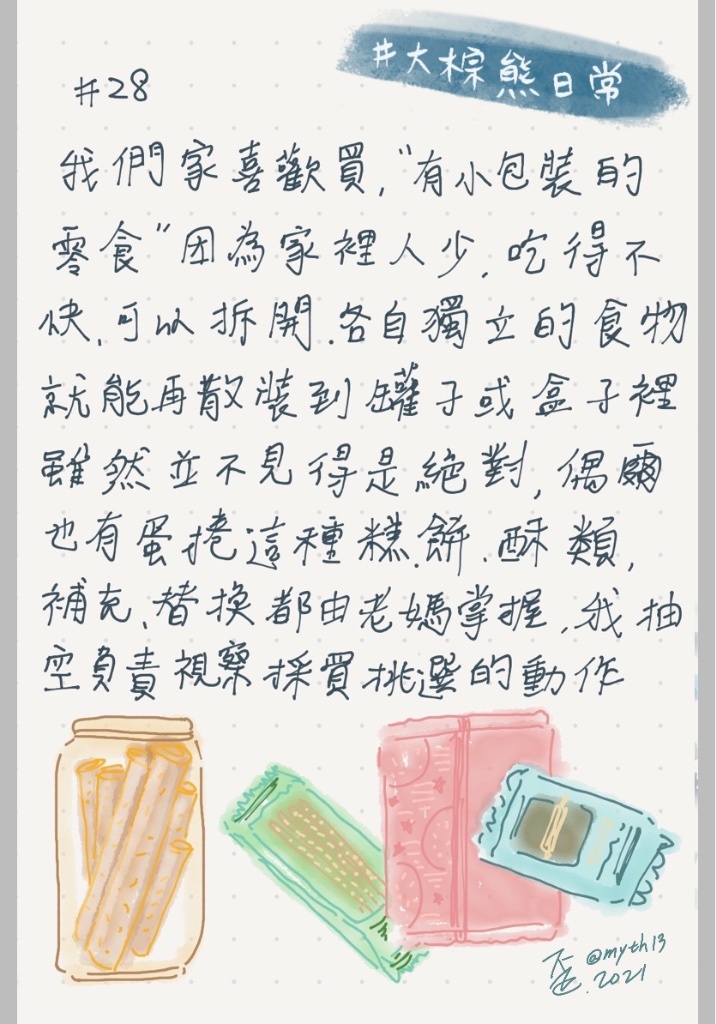 #大棕熊日常
#28
我們家喜歡買,"有小包裝的
零食"因為家裡人少,吃得不
快、可以拆開.各自獨立的食物
就能再散裝到罐子或盒子裡
雖然並不見得是絕對,偶爾
也有蛋捲這種糕.餅.酥類,
補充、替換都由老媽掌握,我抽
空負責視察採買挑選的動作
歪 @myth13
2021